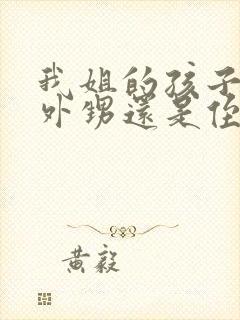 我姐的孩子
外甥還是侄
黃毅